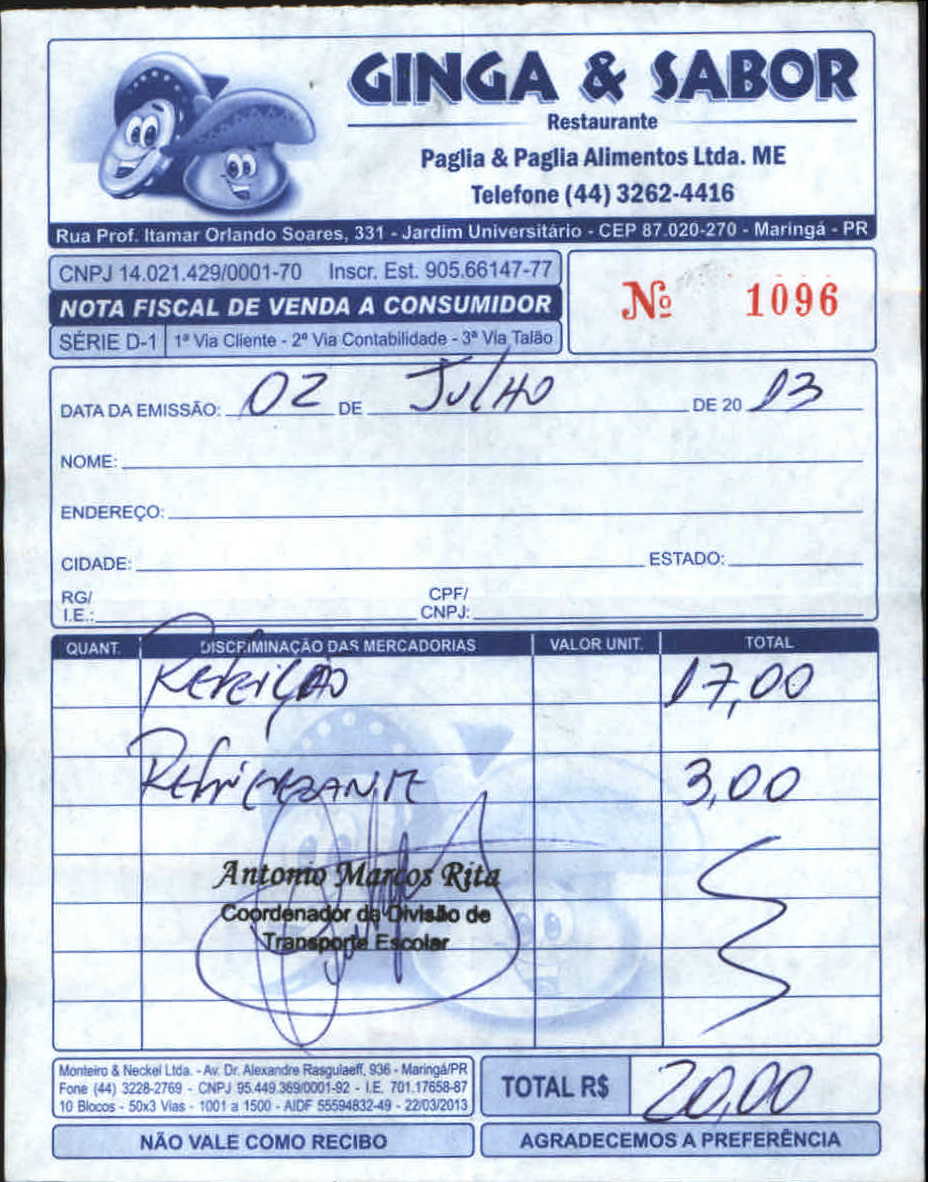 GINGA & SABOR
Restaurante
Paglia & Paglia Alimentos Ltda. ME
Telefone (44) 3262-4416
Rua Prof. Itamar Orlando Soares, 331 - Jardim Universitário - CEP 87.020-270 - Maringá - PR
CNPJ 14.021.429/0001-70 Inscr. Est. 905.66147-77
NOTA FISCAL DE VENDA A CONSUMIDOR
SÉRIE D-1 1ª Via Cliente - 2ª Via Contabilidade - 3ª Via Talão
Nº 1096
DATA DA EMISSÃO: 02 DE Julho DE 20 13
NOME:
ENDEREÇO:
CIDADE: ESTADO:
RG/ I.E.: CPF/ CNPJ:
QUANT. DISCRIMINAÇÃO DAS MERCADORIAS VALOR UNIT. TOTAL
Refeição 17,00
Refrigerante 3,00
Antonio Marcos Rita
Coordenador da Divisão de
Transporte Escolar
Monteiro & Neckel Ltda. - Av. Dr. Alexandre Rasgulaeff, 936 - Maringá/PR
Fone (44) 3228-2769 - CNPJ 95.449.369/0001-92 - I.E. 701.17658-87
10 Blocos - 50x3 Vias - 1001 a 1500 - AIDF 55594832-49 - 22/03/2013
TOTAL R$ 20,00
NÃO VALE COMO RECIBO
AGRADECEMOS A PREFERÊNCIA